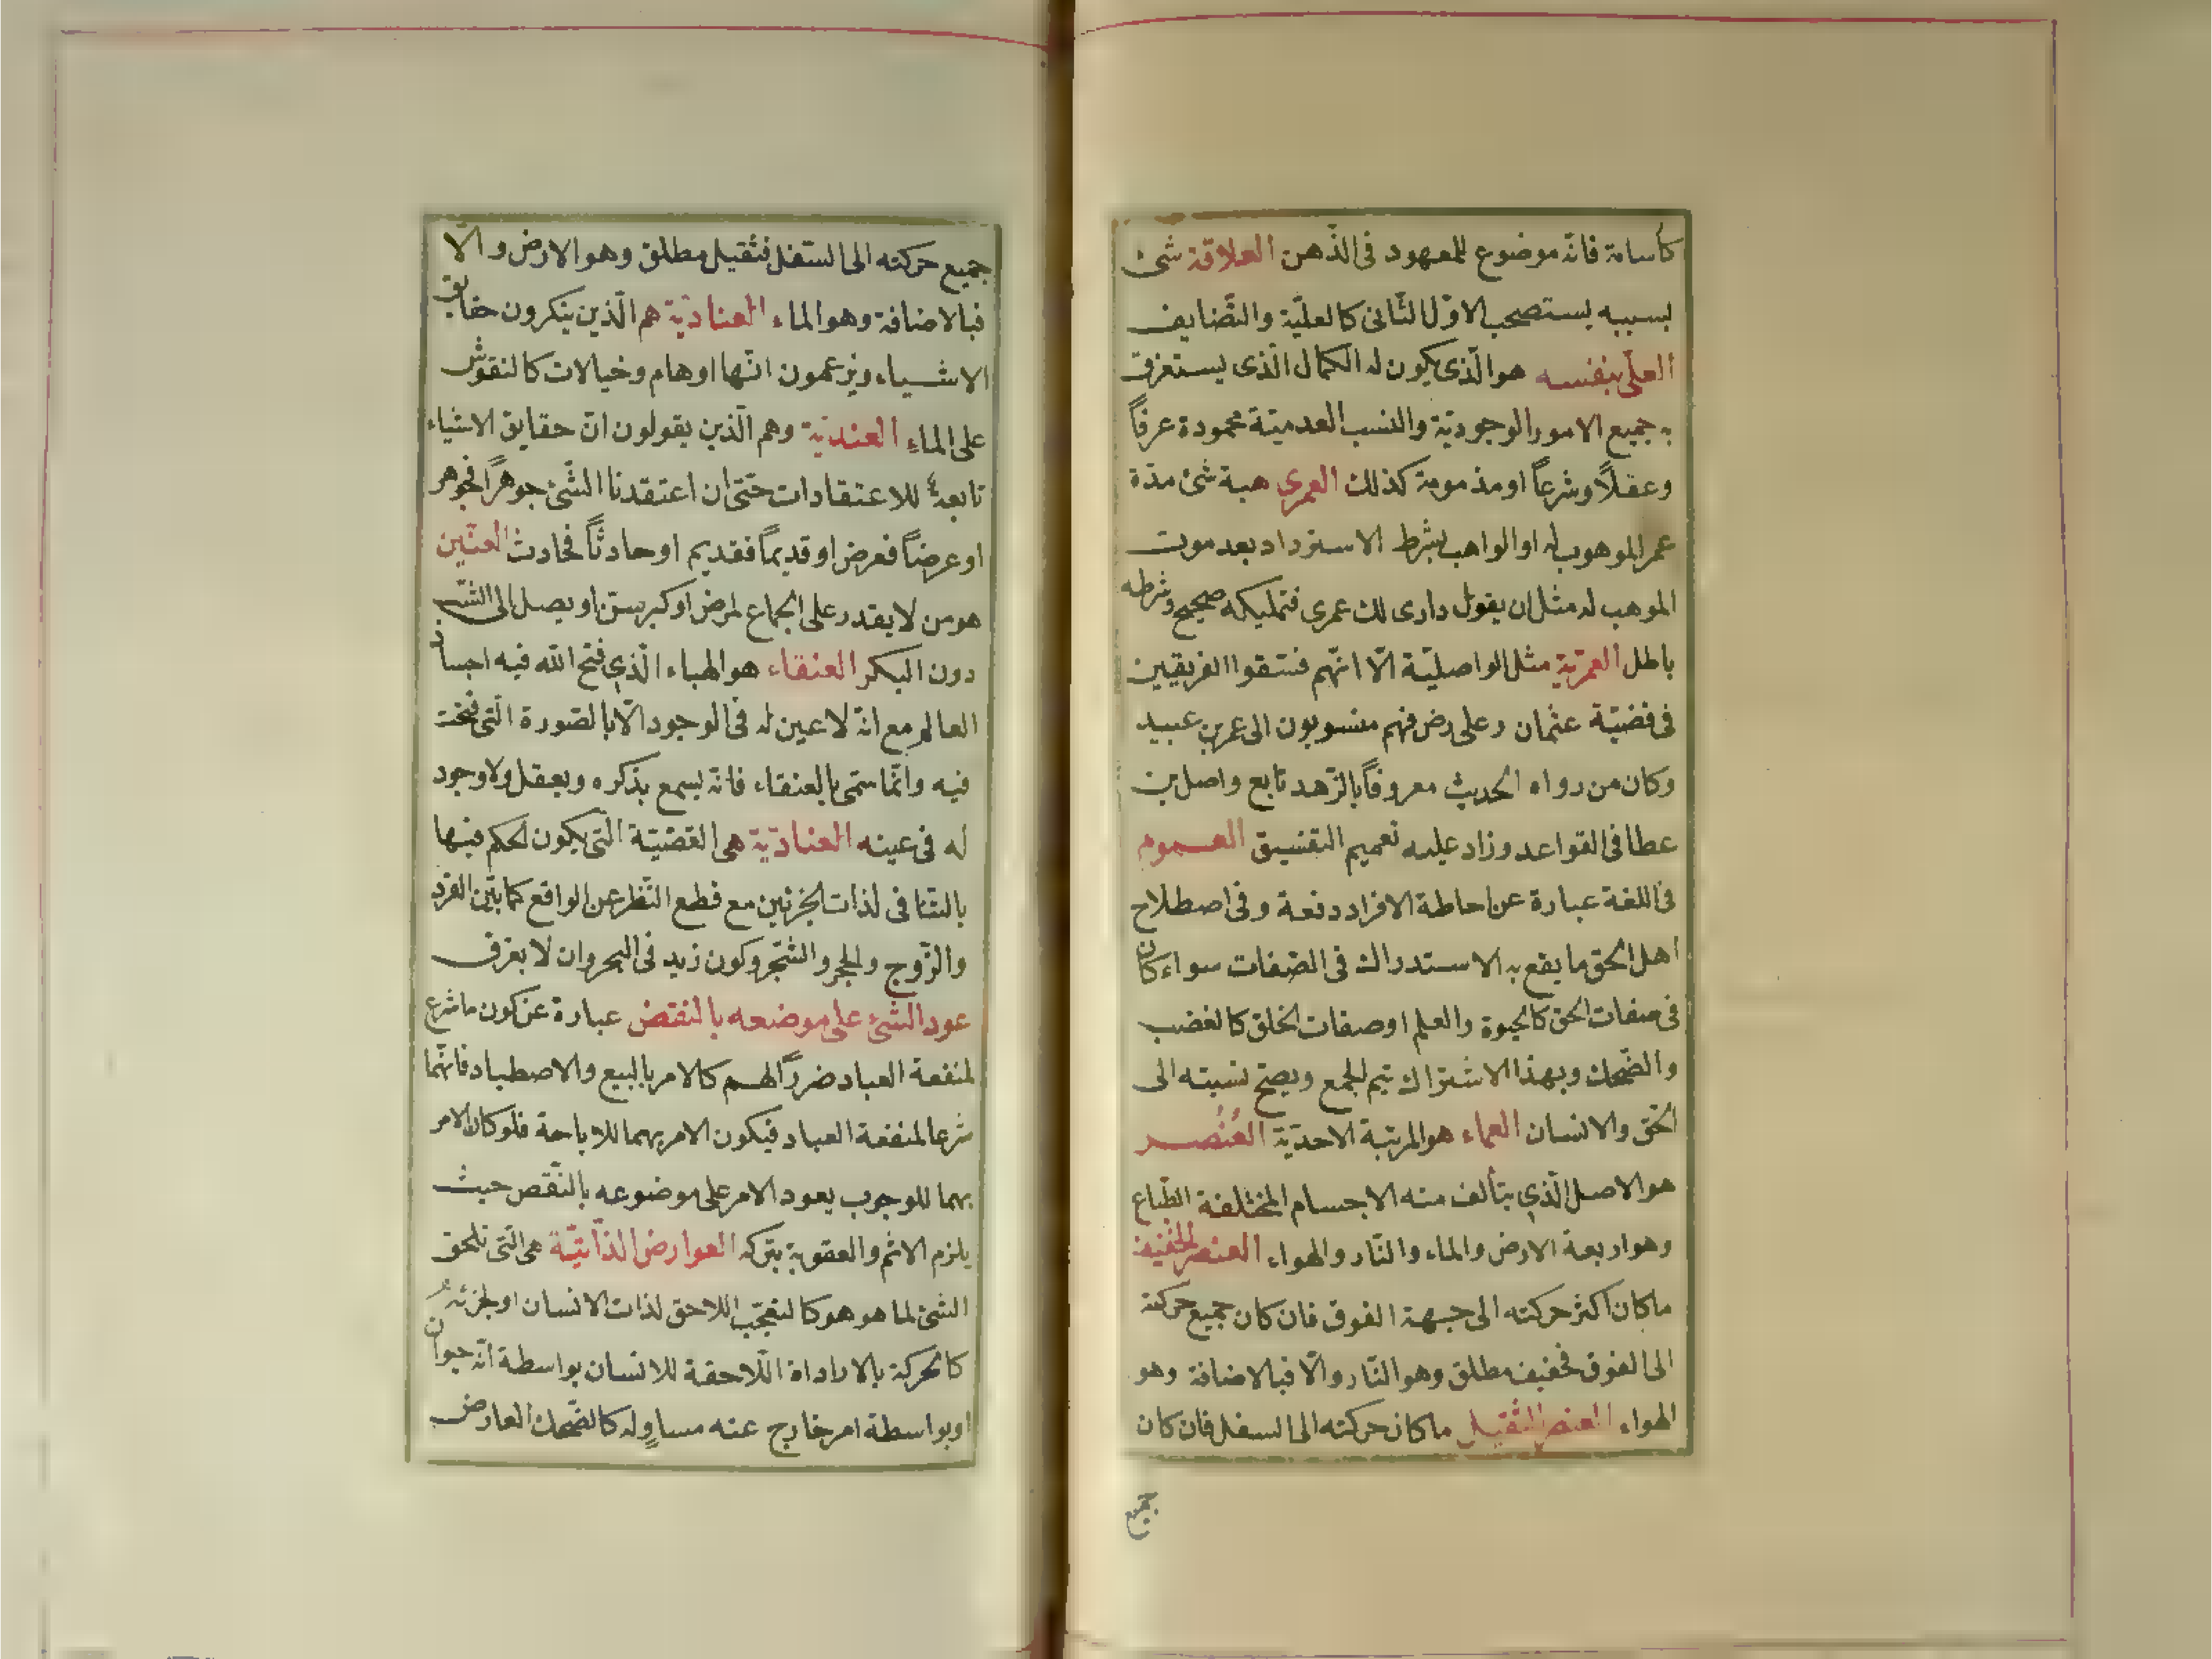 كأسامة فانه موضوع للمعهود فى الذّهن العلاقة شئ
بسببه يستصحب الاوّل الثّانى كالعليّة والتّضايف
العلىّ بنفسه هو الّذى يكون له الكمال الّذى يستغرق
به جميع الامور الوجوديّة والنسب العدميّة محمودة عرفاً
وعقلاً وشرعاً او مذمومة كذلك العمرى هبة شئ مدّة
عمر الموهوب له او الواهب بشرط الاسترداد بعد موت
الموهب له مثل ان يقول دارى لك عمرى فتمليكه صحيح وشرطه
باطل العمريّة مثل الواصليّة الّا انّهم فسّقوا الفريقين
فى قضيّة عثمان وعلى رض فهم منسوبون الى عمر بن عبيد
وكان من رواه الحديث معروفاً بالزّهد تابع واصل بن
عطا فى القواعد وزاد عليه تعميم التفسيق العموم
فى اللغة عبارة عن احاطة الافراد دفعة وفى اصطلاح
اهل الحق ما يقع به الاستدراك فى الصّفات سواء كان
فى صفات الحق كالحيوة والعلم او صفات الخلق كالغضب
والضّحك وبهذا الاشتراك تيم الجمع ويصحّ نسبته الى
الحقّ والانسان العماء هو المرتبة الاحديّة العُنُصر
هو الاصل الّذى يتألف منه الاجسام المختلفة الطّباع
وهو اربعة الارض والماء والنّار والهواء العنصر الخفيف
ما كان اكثر حركته الى جهة الفوق فان كان جميع حركته
الى الفوق فخفيف مطلق وهو النّار والّا فبالاضافة وهو
الهواء العنصر الثّقيل ما كان حركته الى السفل فان كان
جميع
جميع حركته الى السّفل فثقيل مطلق وهو الارض والّا
فبالاضافة وهو الماء العناديّة هم الّذين ينكرون حقايق
الاشياء ويزعمون انّها اوهام وخيالات كالنقوش
على الماءِ العنديّة وهم الّذين يقولون انّ حقايق الاشياء
تابعة للاعتقادات حتّى ان اعتقدنا الشّئ جوهراً فجوهر
او عرضاً فعرض او قديماً فقديم او حادثاً فحادث العنّين
هو من لا يقدر على الجماع لمرض او كبر سنّ او يصل الى الثّيّب
دون البكر العنقاء هو الهباء الّذى فتح الله فيه اجساد
العالم مع انّه لا عين له فى الوجود الّا بالصّورة الّتى فتحت
فيه وانّما سمّى بالعنقاء فانّه يسمع بذكره ويعقل ولا وجود
له فى عينه العناديّة هى القضيّة الّتى يكون الحكم فيها
بالتنافى لذات الجزئين مع قطع النّظر عن الواقع كما بين الفرد
والزّوج والحجر والشّجر وكون زيد فى البحر وان لا يغرق
عود الشئ على موضعه بالنقض عبارة عن كون ما شرع
لمنفعة العباد ضرراً لهم كالامر بالبيع والاصطياد فانّهما
شرعا لمنفعة العباد فيكون الامر بهما للاباحة فلو كان الامر
بهما للوجوب يعود الامر على موضوعه بالنّقص حيث
يلزم الاثم والعقوبة بتركه العوارض الذّاتيّة هى التى تلحق
الشئ لما هو هو كالتعجّب اللاحق لذات الانسان او لجزئه
كالحركة بالاراداة اللّاحقة للانسان بواسطة انّه حيوان
او بواسطة امر خارج عنه مساوٍ له كالضّحك العارض